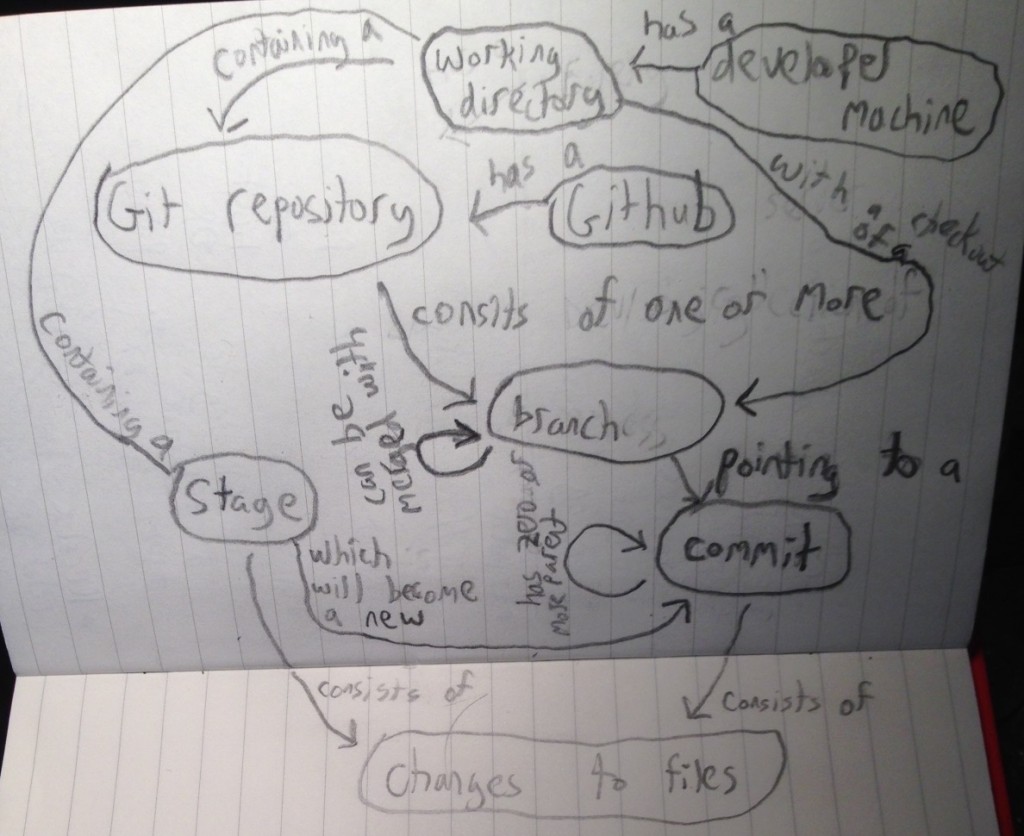 has a
containing a
working
directory
developer
machine
has a
Git repository
Github
with
a checkout
of a
consits of one or more
containing a
can be
merged with
branch
pointing to a
stage
has zero or
more parent
commit
which
will become
a new
consists of
consists of
changes to files